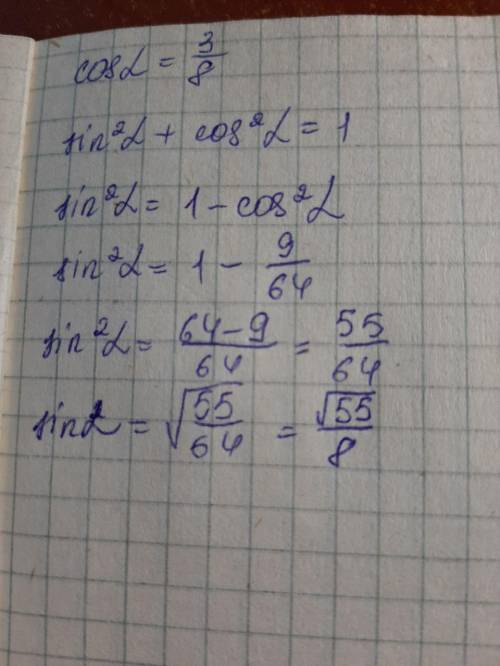 cosα = 3/8
sin²α + cos²α = 1
sin²α = 1 - cos²α
sin²α = 1 - 9/64
sin²α = (64-9)/64 = 55/64
sinα = √(55/64) = √55/8